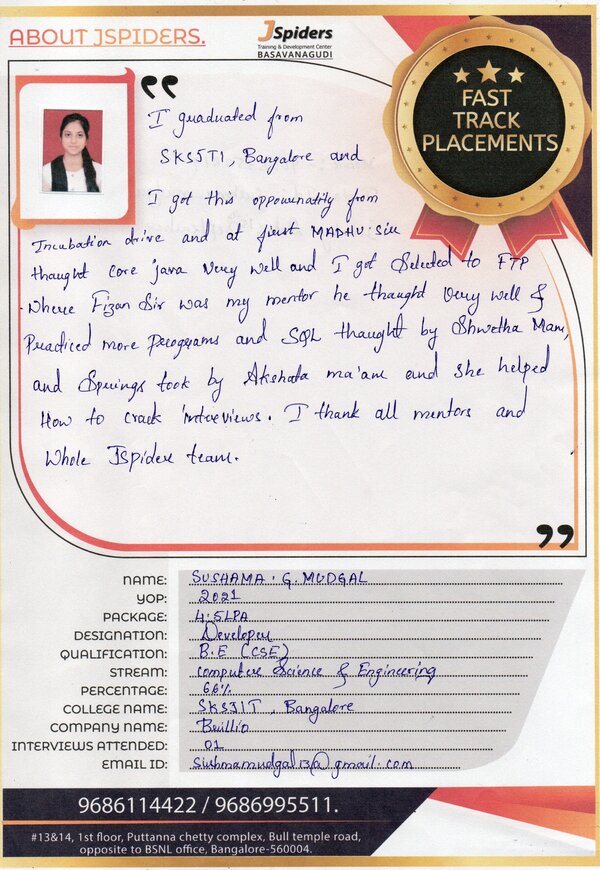 ABOUT JSPIDERS.
JSpiders
Training & Development Center
BASAVANAGUDI
FAST
TRACK
PLACEMENTS
I graduated from
SKSJTI, Bangalore and
I got this oppounatity from
Incubation drive and at first MADHU Sir
thaught core java very well and I got Selected to FTP
Where Fizan Sir was my mentor he thaught very well &
Practiced more programs and SQL thaught by Shwetha Mam,
and Springs took by Akshata ma'am and she helped
How to crack interviews. I thank all mentors and
Whole JSpider team.
NAME: SUSHAMA . G. MUDGAL
YOP: 2021
PACKAGE: 4.5LPA
DESIGNATION: Developer
QUALIFICATION: B.E (CSE)
STREAM: Computer Science & Engineering
PERCENTAGE: 66%
COLLEGE NAME: SKSJIT, Bangalore
COMPANY NAME: Brillio
INTERVIEWS ATTENDED: 01
EMAIL ID: Sushmamudgal13@gmail.com
9686114422 / 9686995511.
#13&14, 1st floor, Puttanna chetty complex, Bull temple road,
opposite to BSNL office, Bangalore-560004.